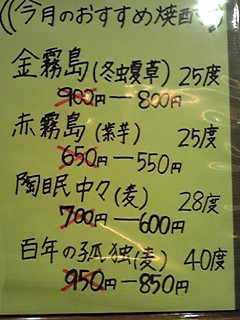 ((今月のおすすめ焼酎))
金霧島(冬虫夏草) 25度
900円—800円
赤霧島(紫芋) 25度
650円—550円
陶眠中々(麦) 28度
700円—600円
百年の孤独(麦) 40度
950円—850円